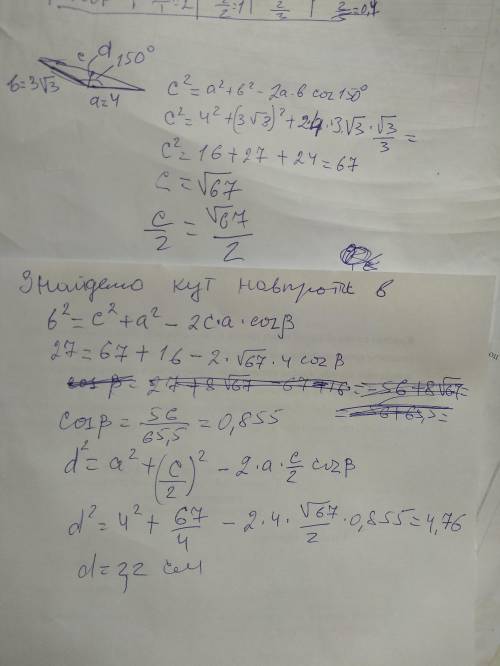 c d 150°
b=3√3
a=4
c² = a² + b² - 2a·b cos150°
c² = 4² + (3√3)² + 2·4·3·√3·√3/3 =
c² = 16 + 27 + 24 = 67
c = √67
c/2 = √67/2
Знайдемо кут навпроти b
b² = c² + a² - 2c·a·cosβ
27 = 67 + 16 - 2·√67·4 cosβ
cosβ = 56/65,5 = 0,855
d² = a² + (c/2)² - 2·a·c/2 cosβ
d² = 4² + 67/4 - 2·4·√67/2·0,855 = 4,76
d = 2,2 см